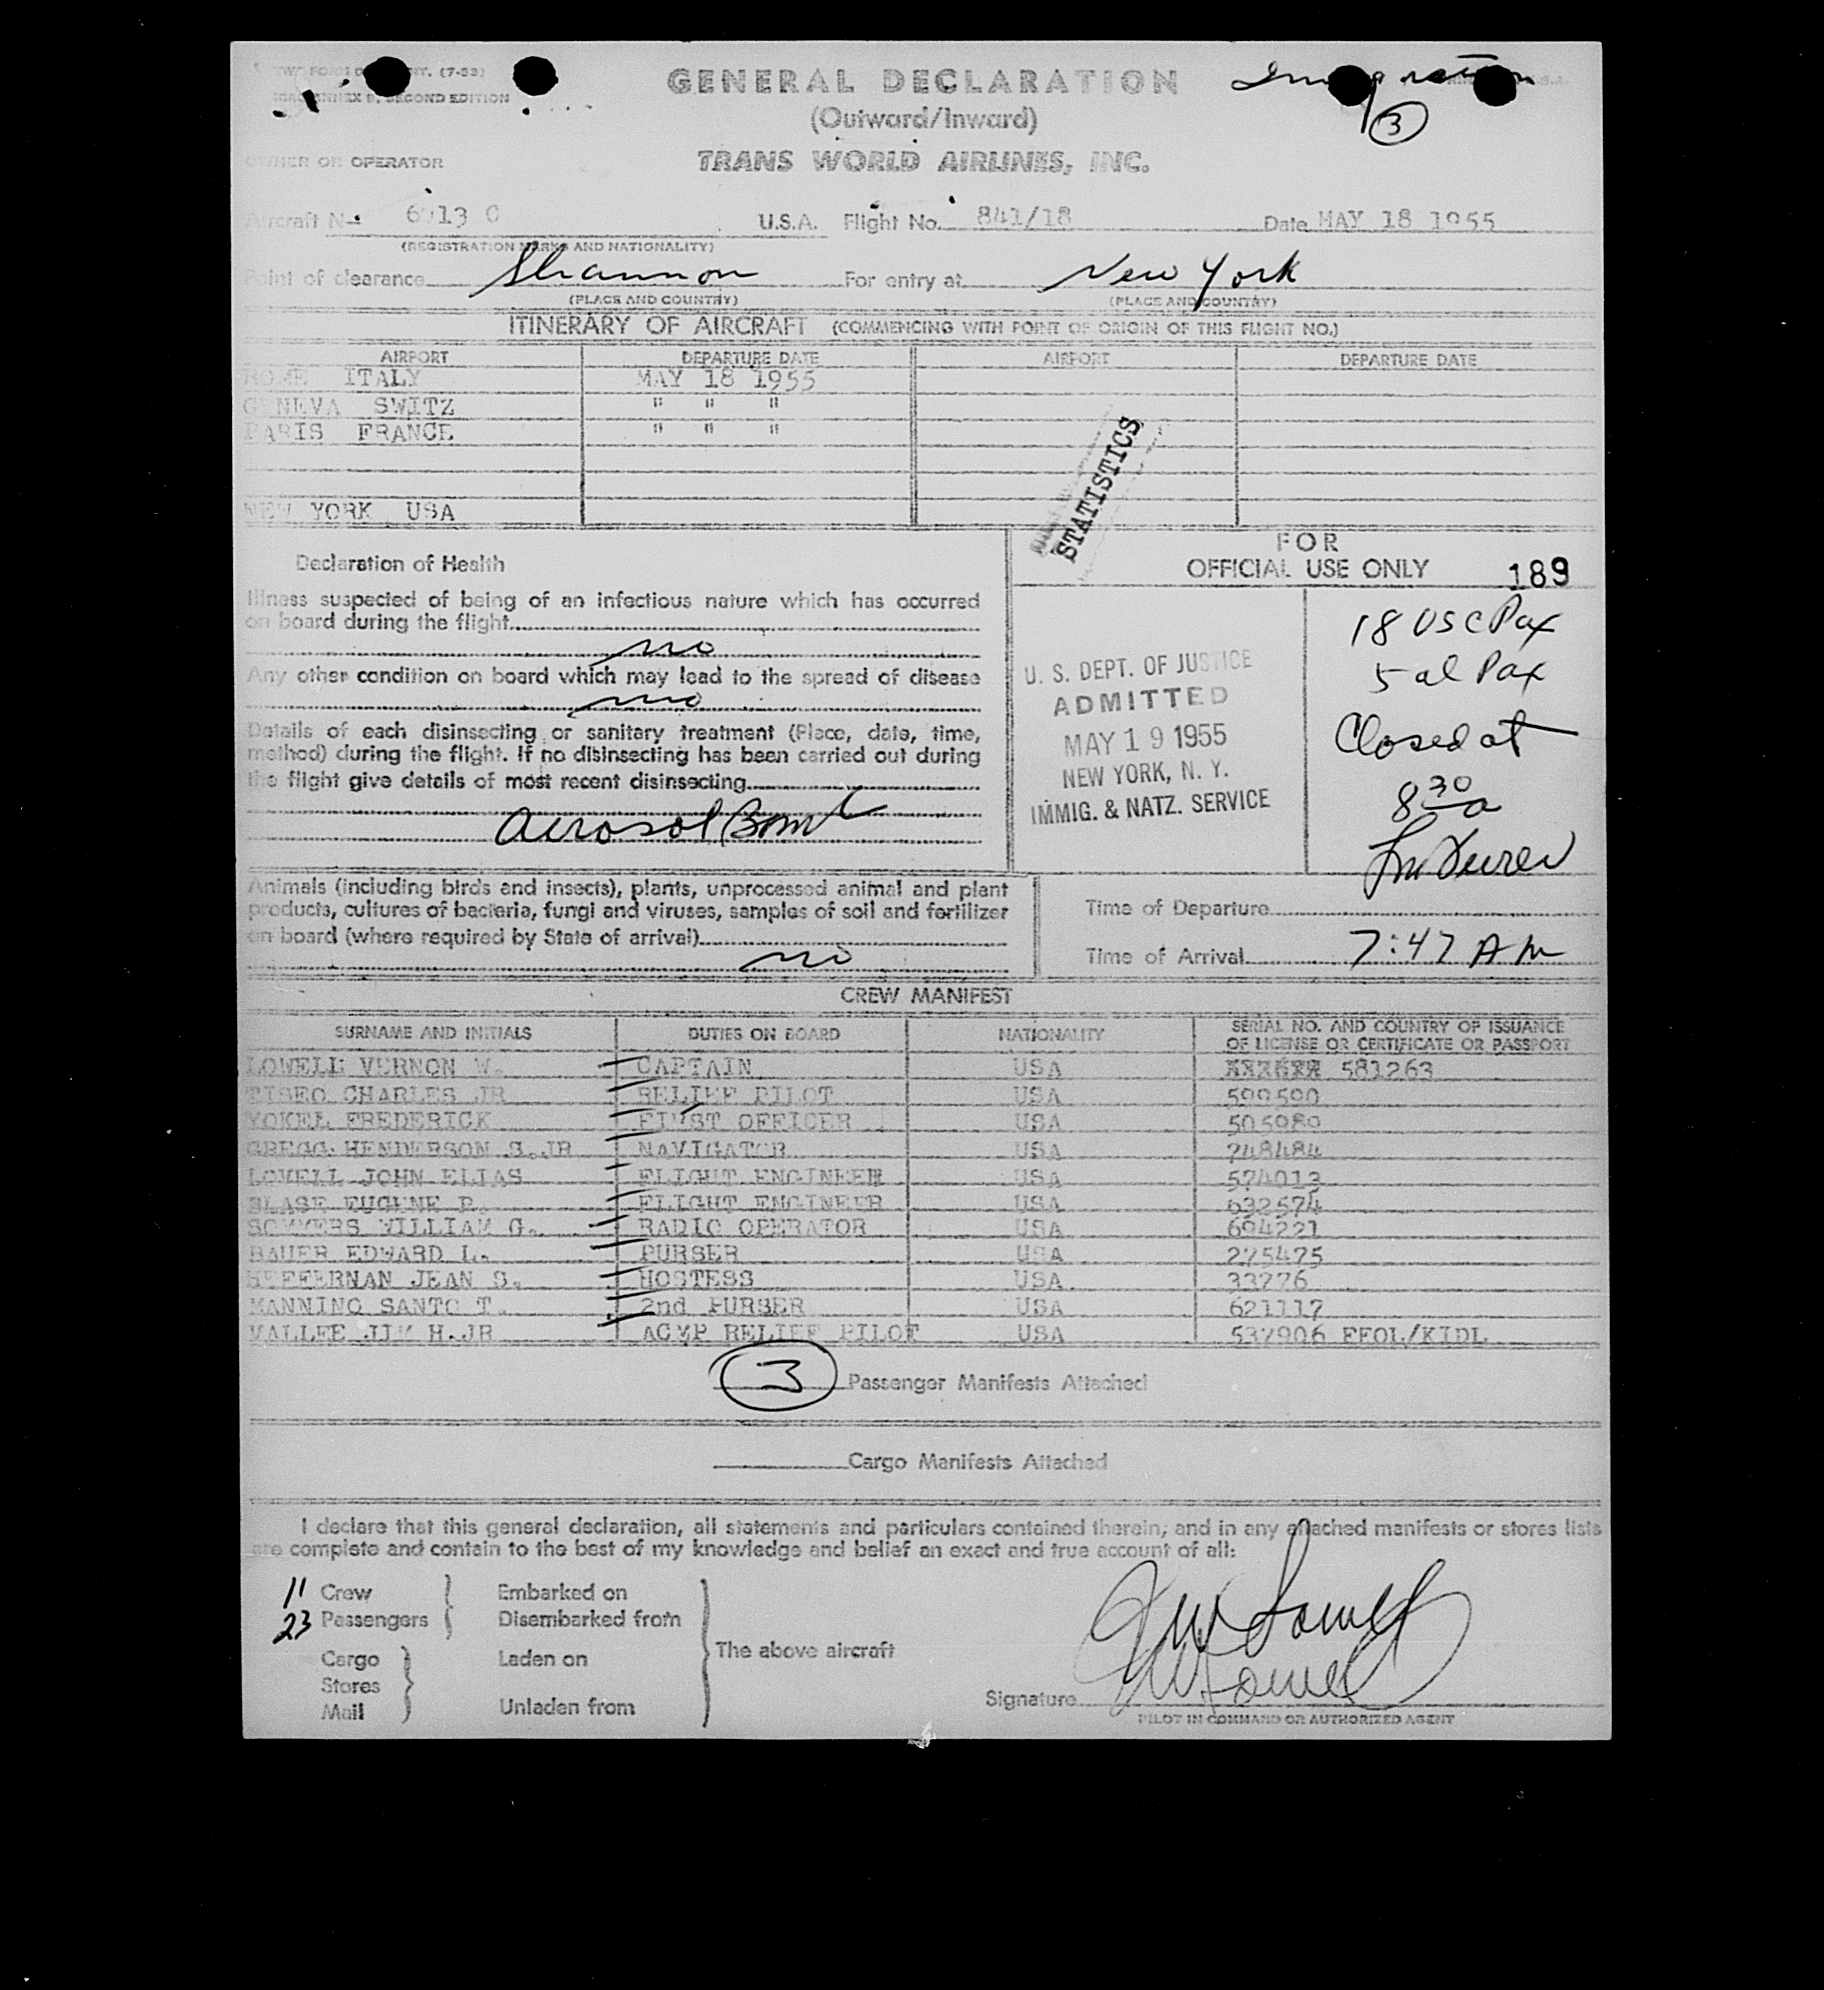 GENERAL DECLARATION
(Outward/Inward)
3
SECOND EDITION
OWNER OR OPERATOR
TRANS WORLD AIRLINES, INC.
Aircraft No. U.S.A. Flight No. 841/18 Date MAY 18 1955
(REGISTRATION MARKS AND NATIONALITY)
Point of clearance Shannon For entry at New York
(PLACE AND COUNTRY) (PLACE AND COUNTRY)
ITINERARY OF AIRCRAFT (COMMENCING WITH POINT OF ORIGIN OF THIS FLIGHT NO.)
AIRPORT DEPARTURE DATE AIRPORT DEPARTURE DATE
ROME ITALY MAY 18 1955
GENEVA SWITZ " " "
PARIS FRANCE " " "
NEW YORK USA
STATISTICS
FOR
OFFICIAL USE ONLY 189
Declaration of Health
Illness suspected of being of an infectious nature which has occurred
on board during the flight
no
Any other condition on board which may lead to the spread of disease
no
Details of each disinsecting or sanitary treatment (Place, date, time,
method) during the flight. If no disinsecting has been carried out during
the flight give details of most recent disinsecting
Aerosol Bomb
U. S. DEPT. OF JUSTICE
ADMITTED
MAY 19 1955
NEW YORK, N. Y.
IMMIG. & NATZ. SERVICE
18 USC Pax
5 al Pax
Closed at
8 30 a
Animals (including birds and insects), plants, unprocessed animal and plant
products, cultures of bacteria, fungi and viruses, samples of soil and fertilizer
on board (where required by State of arrival)
no
Time of Departure
Time of Arrival 7:47 AM
CREW MANIFEST
SURNAME AND INITIALS DUTIES ON BOARD NATIONALITY SERIAL NO. AND COUNTRY OF ISSUANCE
OF LICENSE OR CERTIFICATE OR PASSPORT
LOWELL VERNON W. CAPTAIN USA 581263
TISEO CHARLES JR RELIEF PILOT USA 599590
YOKEL FREDERICK FIRST OFFICER USA 505989
GREGG HENDERSON S.JR NAVIGATOR USA 748484
LOVELL JOHN ELIAS FLIGHT ENGINEER USA 574013
BLASE EUGENE P. FLIGHT ENGINEER USA 632574
SOMMERS WILLIAM G. RADIO OPERATOR USA 694221
BAUER EDWARD L. PURSER USA 275475
HEFFERNAN JEAN S. HOSTESS USA 33776
MANNINO SANTO T. 2nd PURSER USA 621117
VALLEE JIM H.JR ACMP RELIEF PILOT USA 537906 FFOL/KIDL
3 Passenger Manifests Attached
Cargo Manifests Attached
I declare that this general declaration, all statements and particulars contained therein, and in any attached manifests or stores lists
are complete and contain to the best of my knowledge and belief an exact and true account of all:
11 Crew
23 Passengers
Embarked on
Disembarked from
Cargo
Stores
Mail
Laden on
Unladen from
The above aircraft
Signature VW Lowell
PILOT IN COMMAND OR AUTHORIZED AGENT